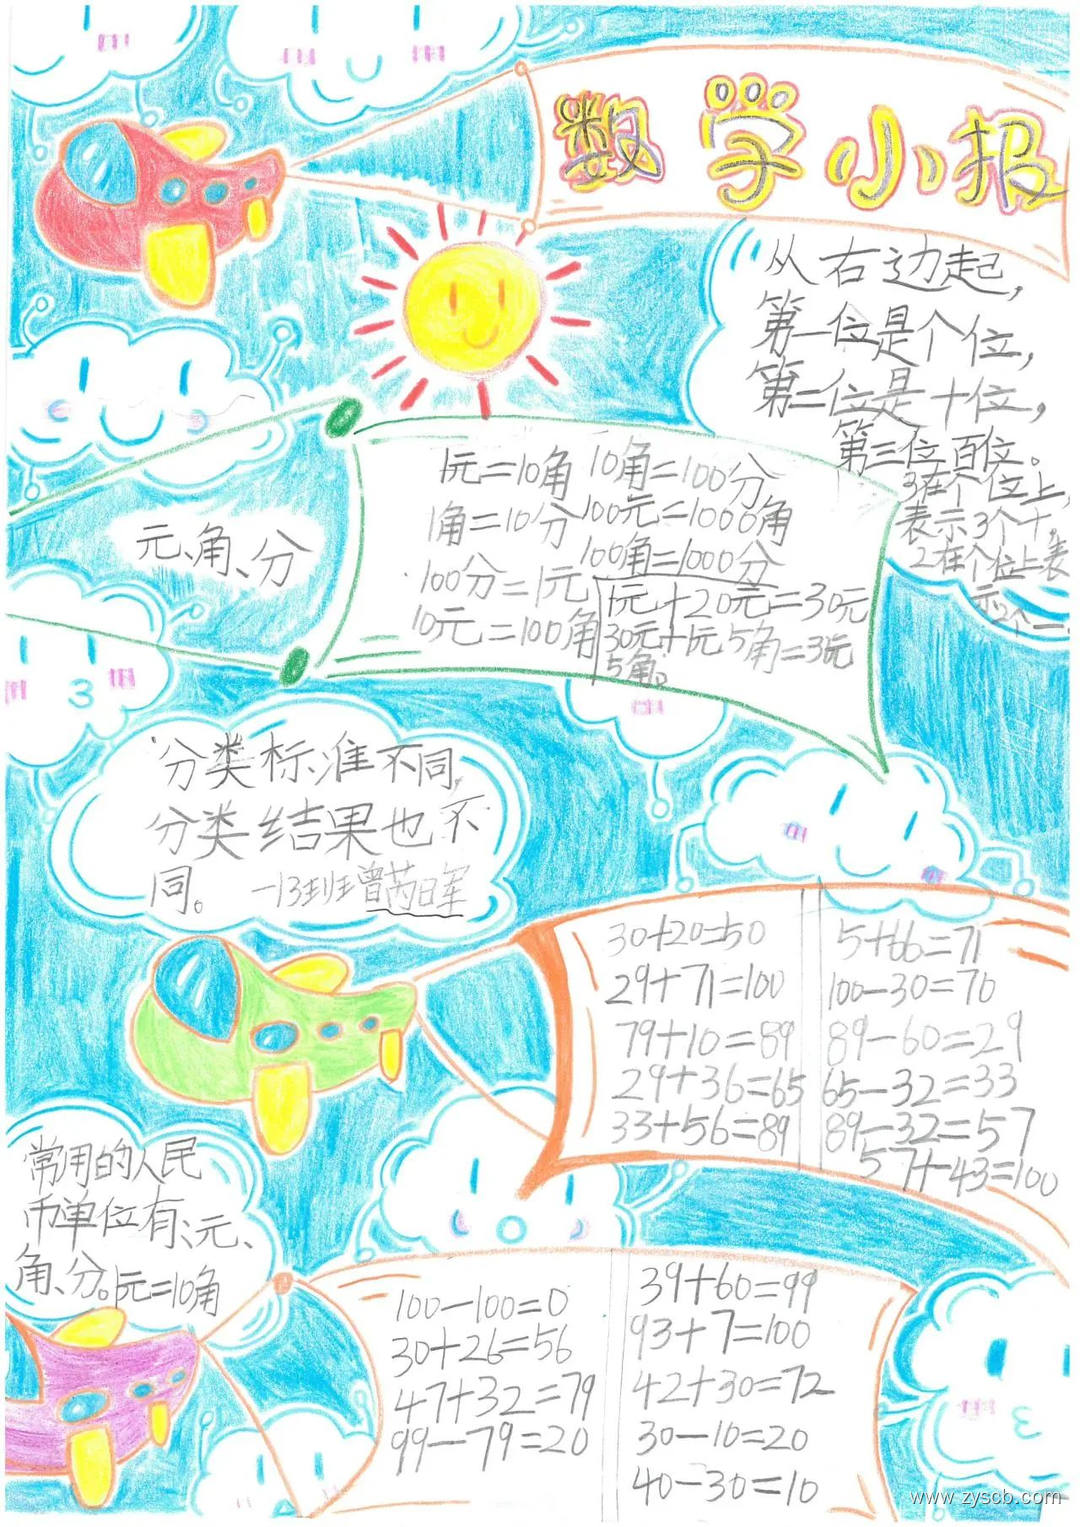 数学小报
从右边起，
第一位是个位，
第二位是十位，
第三位百位。
3在个位上，
表示3个十。
2在个位上表
示2个一。
元、角、分
1元=10角 10角=100分
1角=10分 100元=1000角
100角=1000分
100分=1元
10元=100角
1元+20元=30元
30元+1元5角=31元
5角。
分类标准不同，
分类结果也不
同。
一13班曾芮日军
30+20=50
29+71=100
79+10=89
29+36=65
33+56=89
5+66=71
100-30=70
89-60=29
65-32=33
89-32=57
57+43=100
常用的人民
币单位有、元、
角、分。1元=10角
100-100=0
30+26=56
47+32=79
99-79=20
39+60=99
93+7=100
42+30=72
30-10=20
40-30=10
www.zyscb.com